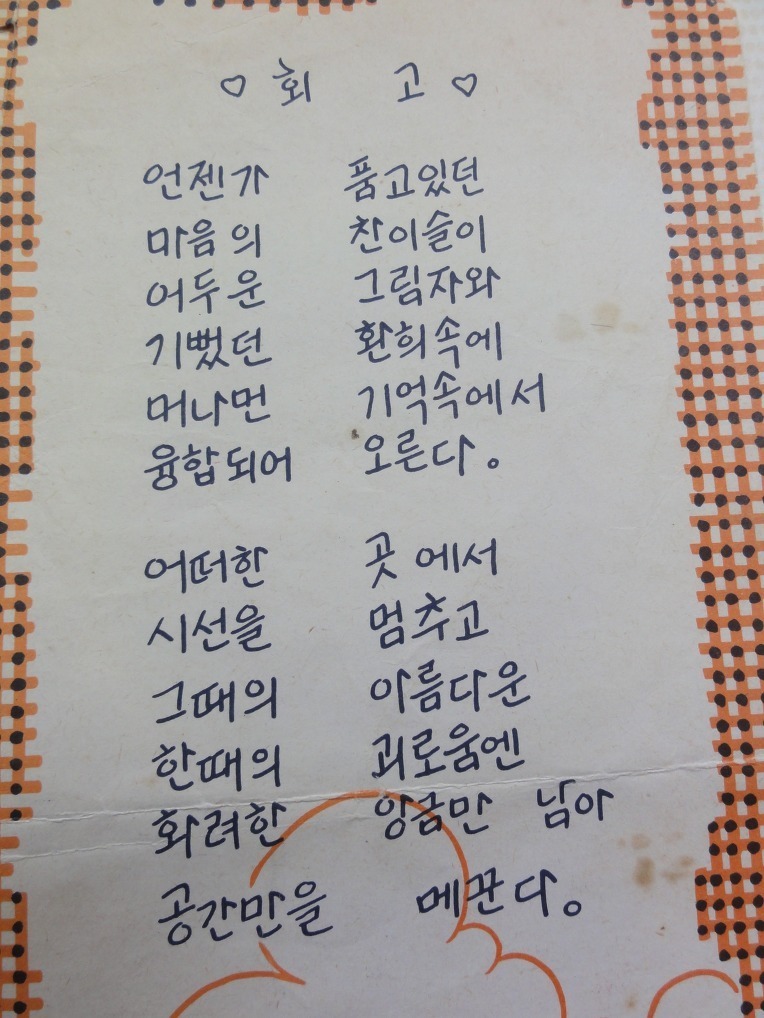 ♡ 회 고 ♡
언젠가 품고있던
마음의 찬이슬이
어두운 그림자와
기뻤던 환희속에
머나먼 기억속에서
융합되어 오른다.
어떠한 곳에서
시선을 멈추고
그때의 아름다운
한때의 괴로움엔
화려한 앙금만 남아
공간만을 메꾼다.